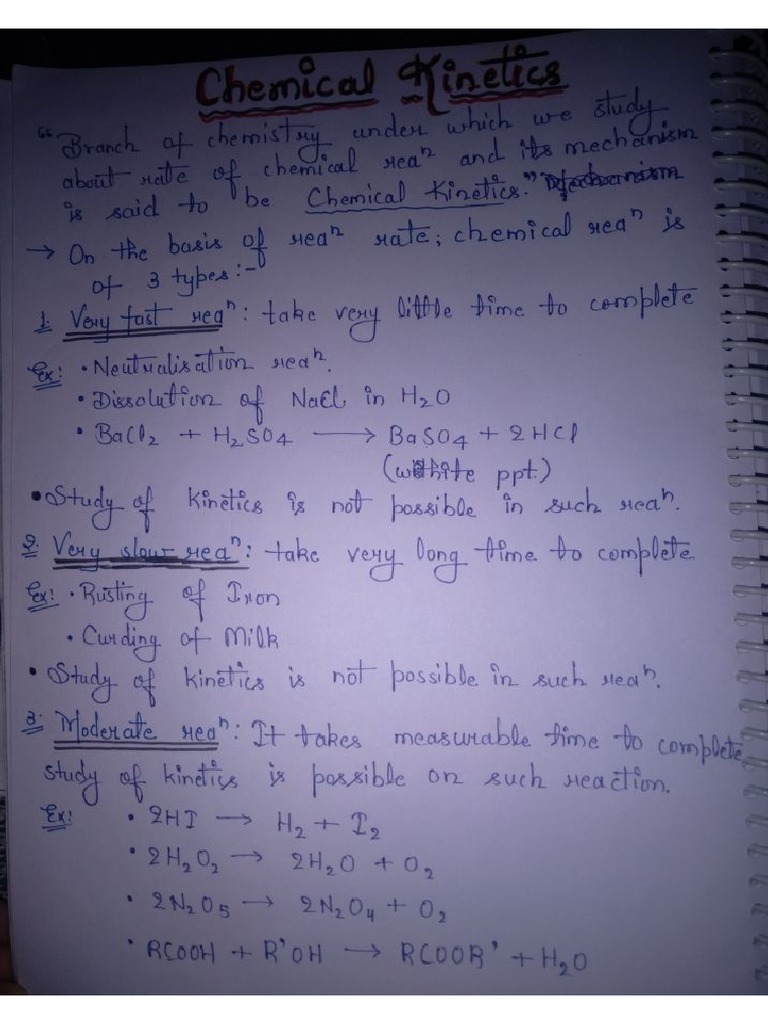 Chemical Kinetics
"Branch of chemistry under which we study
about rate of chemical reaⁿ and its mechanism
is said to be Chemical Kinetics."
→ On the basis of reaⁿ rate; chemical reaⁿ is
of 3 types:-
1. Very fast reaⁿ: take very little time to complete
Ex: • Neutralisation reaⁿ.
• Dissolution of NaCl in H₂O
• BaCl₂ + H₂SO₄ → BaSO₄ + 2HCl
(white ppt.)
• Study of kinetics is not possible in such reaⁿ.
2. Very slow reaⁿ: take very long time to complete
Ex: • Rusting of Iron
• Curding of Milk
• Study of kinetics is not possible in such reaⁿ.
3. Moderate reaⁿ: It takes measurable time to complete
study of kinetics is possible on such reaction.
Ex: • 2HI → H₂ + I₂
• 2H₂O₂ → 2H₂O + O₂
• 2N₂O₅ → 2N₂O₄ + O₂
• RCOOH + R'OH → RCOOR' + H₂O